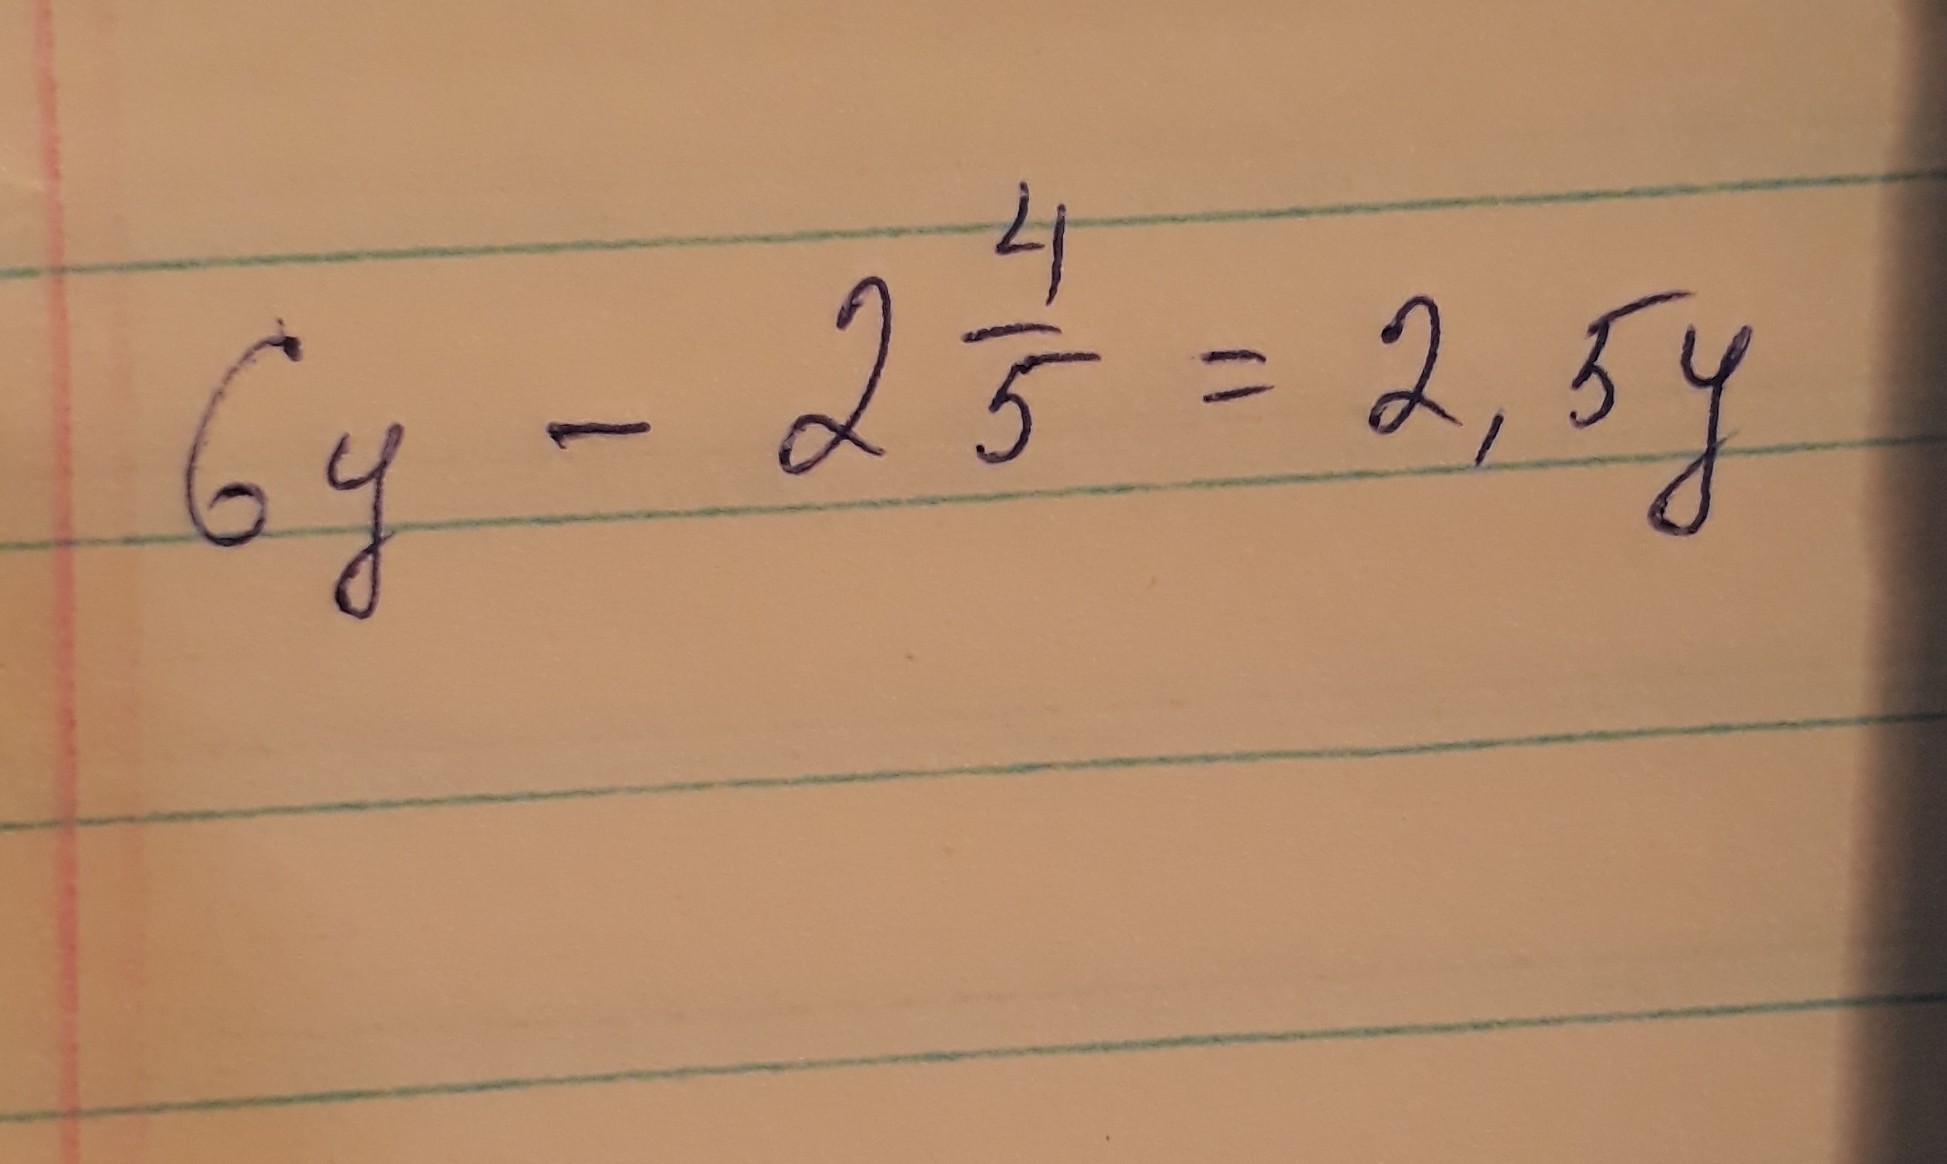 6y - 2 4/5 = 2,5y